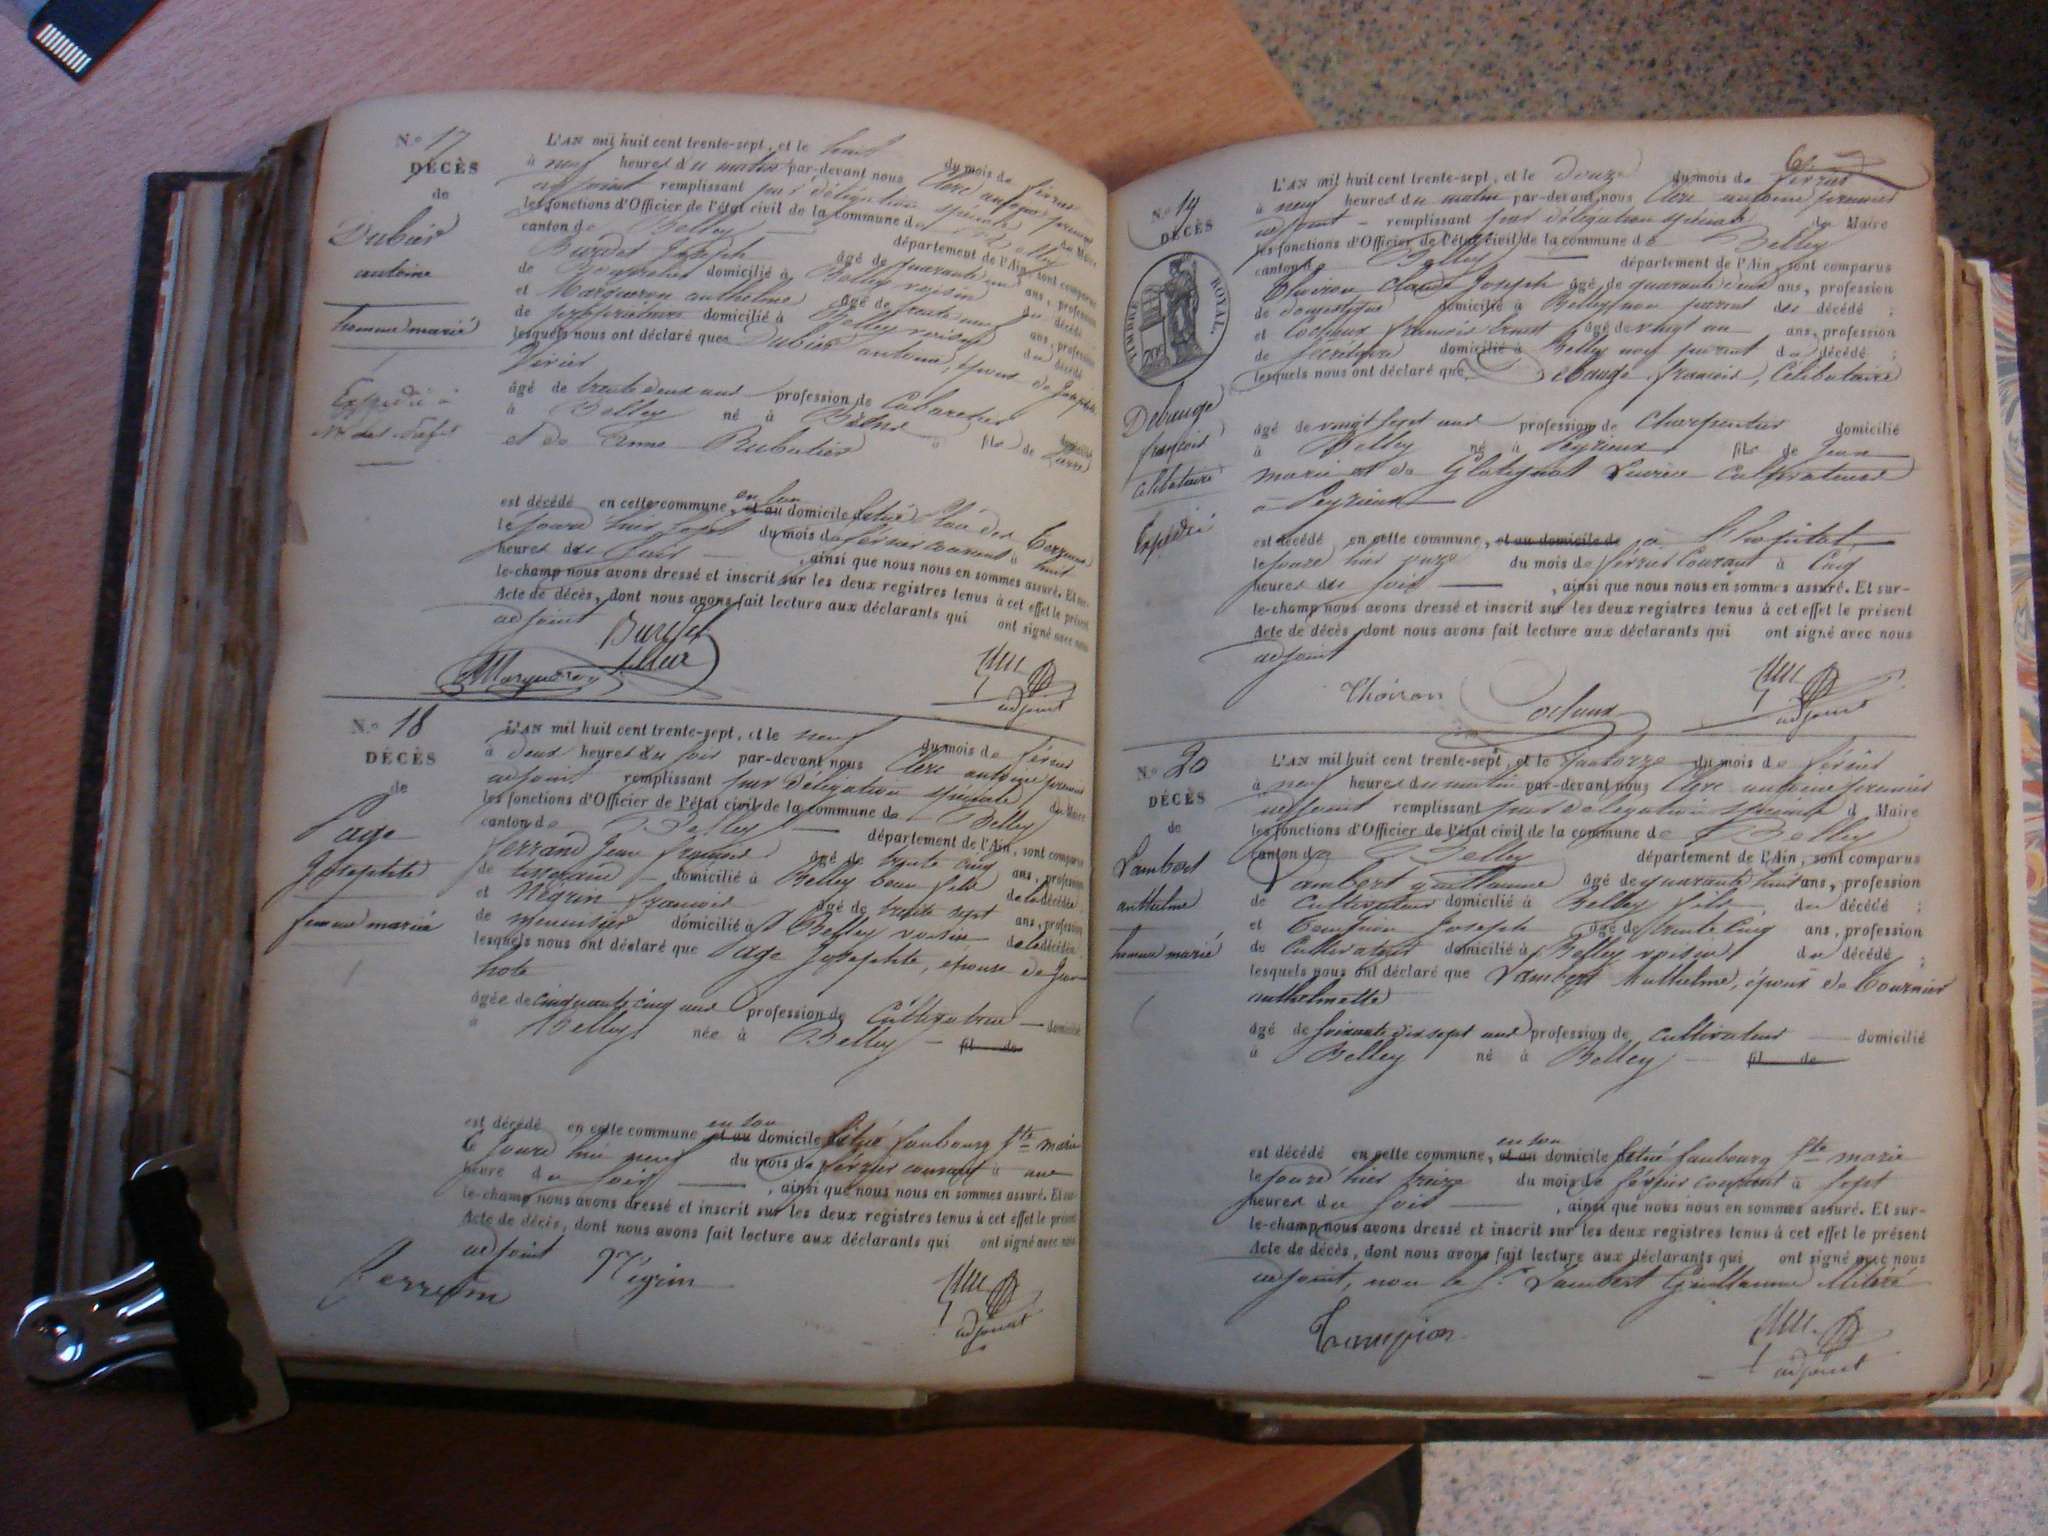 N.º 17
DÉCÈS
de
Dubier
antoine
homme marié
Expédié à
L'AN mil huit cent trente-sept, et le huit du mois de février
à neuf heures du matin par-devant nous Clerc antoine premier
adjoint remplissant par délégation spéciale de Maire
les fonctions d'Officier de l'état civil de la commune de Belley
canton de Belley département de l'Ain, sont comparus
Burdet Joseph âgé de quarante ans, profession
de domicilié à Belley voisin du décédé
et Marqueron anthelme âgé de trente neuf ans, profession
de domicilié à Belley voisin du décédé
lesquels nous ont déclaré que Dubier antoine, époux de Josephte
âgé de trente deux ans profession de Cabaretier domicilié
à Belley né à fils de Pierre
et de Anne Rubatier
est décédé en cette commune, en son et au domicile situé Place des Terreaux
le jourd hier sept du mois de février courant à huit
heures du soir , ainsi que nous nous en sommes assuré. Et sur-
le-champ nous avons dressé et inscrit sur les deux registres tenus à cet effet le présent
Acte de décès, dont nous avons fait lecture aux déclarants qui ont signé avec nous
adjoint Burdet
Marqueron Clerc
adjoint
N.º 18
DÉCÈS
de
Page
Josephte
femme mariée
L'AN mil huit cent trente-sept, et le neuf du mois de février
à deux heures du soir par-devant nous Clerc antoine premier
adjoint remplissant par délégation spéciale de Maire
les fonctions d'Officier de l'état civil de la commune de Belley
canton de Belley département de l'Ain, sont comparus
ferrand Jean françois âgé de trente cinq ans, profession
de tisserand domicilié à Belley beau fils de la décédée
et Négrin françois âgé de trente sept ans, profession
de menuisier domicilié à Belley voisin de la décédée
lesquels nous ont déclaré que Page Josephte, épouse de
âgée de cinquante cinq ans profession de Cultivatrice domiciliée
à Belley née à Belley fil de
est décédé en cette commune en son et au domicile situé faubourg Ste marie
le jourd hui neuf du mois de février courant à une
heure du soir , ainsi que nous nous en sommes assuré. Et sur-
le-champ nous avons dressé et inscrit sur les deux registres tenus à cet effet le présent
Acte de décès, dont nous avons fait lecture aux déclarants qui ont signé avec nous
adjoint Négrin
ferrand Clerc
adjoint
N.º 19
DÉCÈS
TIMBRE ROYAL.
Debauge
françois
célibataire
Expédié
L'AN mil huit cent trente-sept, et le douze du mois de février
à neuf heures du matin par-devant nous Clerc antoine premier
adjoint remplissant par délégation spéciale de Maire
les fonctions d'Officier de l'état civil de la commune de Belley
canton de Belley département de l'Ain, sont comparus
Thoiron Claude Joseph âgé de quarante deux ans, profession
de domestique domicilié à Belley non parent du décédé ;
et Cochaux françois ernest âgé de vingt un ans, profession
de Secrétaire domicilié à Belley non parent du décédé ;
lesquels nous ont déclaré que Debauge françois, Célibataire
âgé de vingt sept ans profession de Charpentier domicilié
à Belley né à Peyrieux fils de Jean
marie et de Glatignat Cultivateurs
à Peyrieux
est décédé en cette commune, et au domicile de à l'hopital
le jourd hier onze du mois de février Courant à Cinq
heures du soir , ainsi que nous nous en sommes assuré. Et sur-
le-champ nous avons dressé et inscrit sur les deux registres tenus à cet effet le présent
Acte de décès, dont nous avons fait lecture aux déclarants qui ont signé avec nous
adjoint
Thoiron Cochaux Clerc
adjoint
N.º 20
DÉCÈS
de
Lambert
anthelme
homme marié
L'AN mil huit cent trente-sept, et le quatorze du mois de février
à neuf heures du matin par-devant nous Clerc antoine premier
adjoint remplissant par délégation spéciale d Maire
les fonctions d'Officier de l'état civil de la commune de Belley
canton de Belley département de l'Ain, sont comparus
Lambert guillaume âgé de quarante huit ans, profession
de cultivateur domicilié à Belley fils du décédé ;
et Joseph âgé de trente Cinq ans, profession
de Cultivateur domicilié à Belley voisin du décédé ;
lesquels nous ont déclaré que Lambert Anthelme, époux de Tournier
anthelmette
âgé de soixante dix sept ans profession de cultivateur domicilié
à Belley né à Belley fil de
est décédé en cette commune, en son et au domicile situé faubourg Ste marie
le jourd hier treize du mois de février courant à sept
heures du soir , ainsi que nous nous en sommes assuré. Et sur-
le-champ nous avons dressé et inscrit sur les deux registres tenus à cet effet le présent
Acte de décès, dont nous avons fait lecture aux déclarants qui ont signé avec nous
adjoint, non le Sr Lambert Guillaume illitéré
Clerc
adjoint